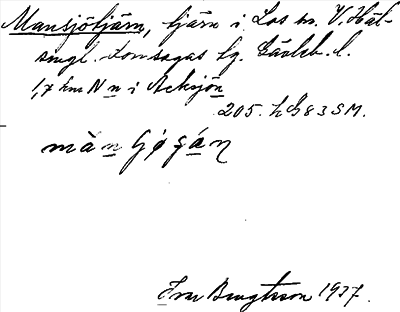 Mansjötjärn, tjärn i Los sn. V. Häl-
singl. domsagas tg. Gävleb. l.
1,7 km N n i Acksjön
205. h G 8 3 SM.
Ivar Bengtsson 1937.